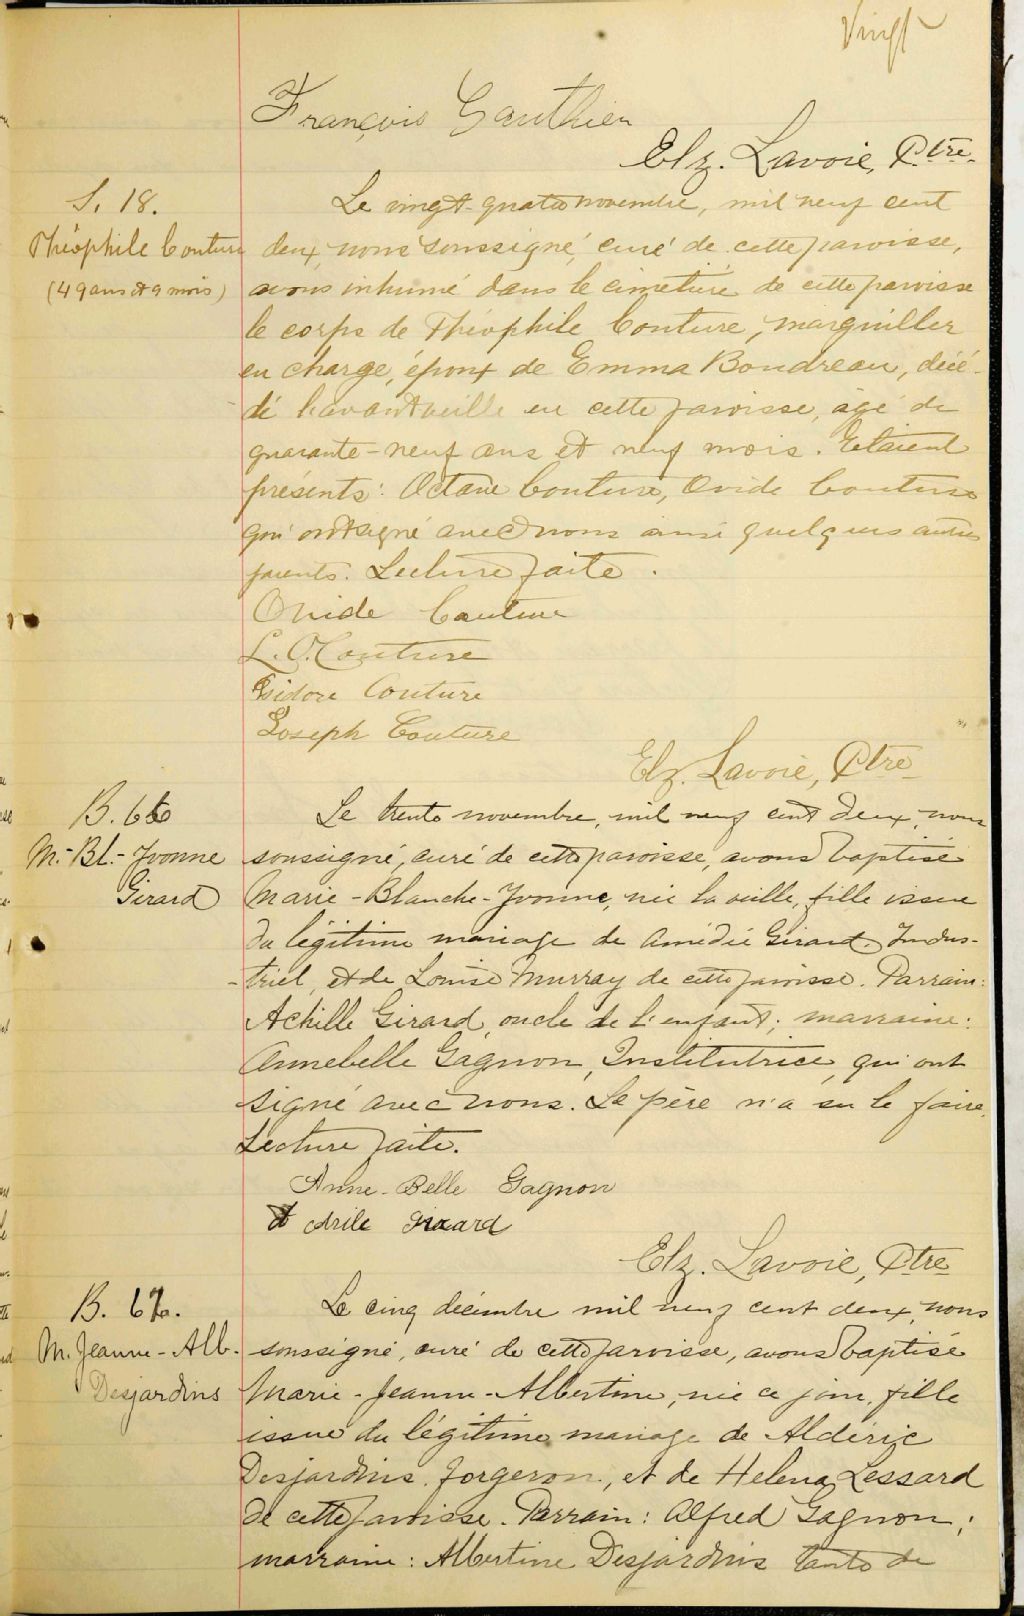 Vingt
François Gauthier
Elz. Lavoie, Ptre.
S. 18.
Théophile Couture
(49 ans et 9 mois)
Le vingt-quatre novembre, mil neuf cent
deux, nous soussigné, curé de cette paroisse,
avons inhumé dans le cimetière de cette paroisse
le corps de Théophile Couture, marguiller
en charge, époux de Emma Boudreau, décé-
dé l'avant veille en cette paroisse, âgé de
quarante-neuf ans et neuf mois. Etaient
présents: Octave Couture, Ovide Couture
qui ont signé avec nous ainsi quelques autres
parents. Lecture faite.
Ovide Couture
L. O. Couture
Isidore Couture
Joseph Couture
Elz. Lavoie, Ptre
B. 66
M.-Bl.-Yvonne
Girard
Le trente novembre, mil neuf cent deux, nous
soussigné, curé de cette paroisse, avons baptisé
Marie-Blanche-Yvonne, née la veille, fille issue
du légitime mariage de Amédée Girard, Indus-
-triel, et de Louise Murray de cette paroisse. Parrain:
Achille Girard, oncle de l'enfant; marraine:
Annebelle Gagnon, Institutrice, qui ont
signé avec nous. Le père n'a su le faire.
Lecture faite.
Anne-Belle Gagnon
Girard
Elz. Lavoie, Ptre
B. 67.
M. Jeanne-Alb.
Desjardins
Le cinq décembre mil neuf cent deux, nous
soussigné, curé de cette paroisse, avons baptisé
Marie-Jeanne-Albertine, née ce jour, fille
issue du légitime mariage de Aldéric
Desjardins, forgeron, et de Helena Lessard
de cette paroisse. Parrain: Alfred Gagnon;
marraine: Albertine Desjardins tante de